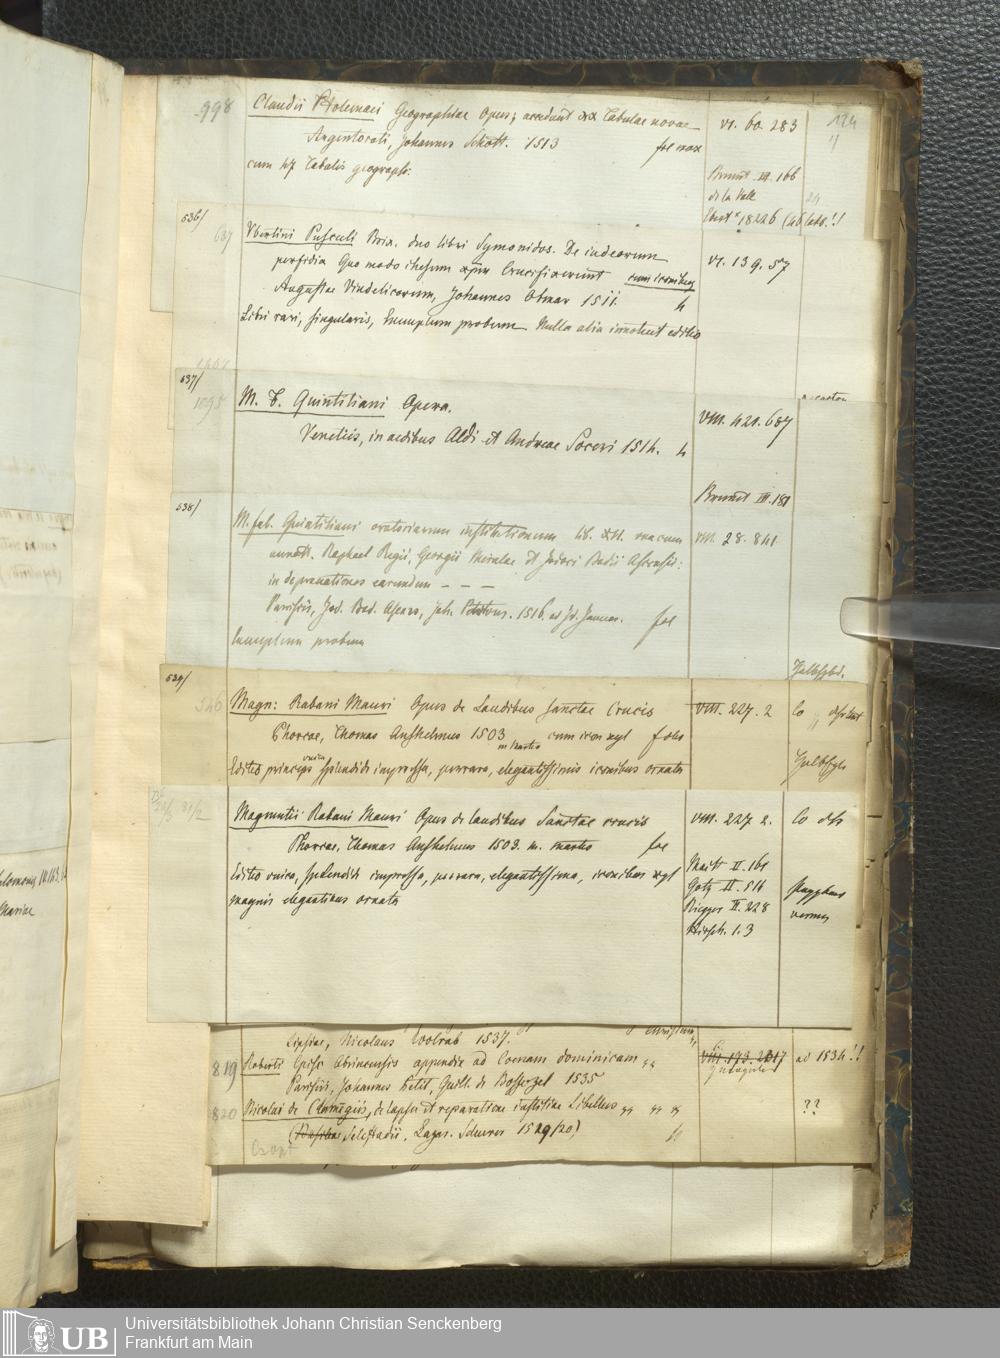 998 Claudii Ptolemaei Geographiae Opus; accedunt XX Tabulae novae VI. 60. 283
Argentorati, Johannes Schott. 1513 fol max
cum 47 Tabulis geograph: Brunet III. 166
de la Vall
Ebert 18226 (46 tabb.!!
536/
637 Ubertini Pusculi Brix. duo libri Symonidos. De iudeorum VI. 139. 57
perfidia Quo modo ihesum xpm Crucifixerunt cum iconibus
Augustae Vindelicorum, Johannes Otmar 1511. 4
Libri rari, singularis, Exemplum probum Nulla alia innotuit editio
537/
1095 M. F. Quintiliani Opera. VIII. 421. 687
Venetiis, in aedibus Aldi et Andreae Soceri 1514. 4
Brunet III. 181
538/
M. fab. Quintiliani oratoriarum institutionum lib. XII. una cum VIII. 28. 841
annott. Raphael Regii, Georgii Merulae et Jodoci Badii Ascensii:
in depravationes earundem - - -
Parisiis, Jod. Bad. Ascens, Joh. 1516. ad Id. Januar. fol
Exemplum probum
539/
546 Magn: Rabani Mauri Opus de Laudibus sanctae Crucis VIII. 227. 2
Phorcae, Thomas Anshelmus 1503 m Martio cum icon xyl fol
Editio princeps unica splendide impressa, perrara, elegantissimis iconibus ornata
Magnentii Rabani Mauri Opus de laudibus Sanctae crucis VIII. 227 2.
Phorcae, Thomas Anshelmus 1503. m. Martio fol
Editio unica, splendide impressa, perrara, elegantissima, iconibus xyl
magnis elegantibus ornata
Maitt II. 161
Götz II. 514
Riegger II. 228
Hirsch. 1. 3
Lipsiae, Nicolaus Wolrab 1537.
819 Roberti Episc Abrincensis appendix ad Coenam dominicam ad 1534!!
Parisiis, Johannes Petit, Guill. de Bossozel 1535
820 Nicolai de Clamigiis, de lapsu et reparatione iustitiae Libellus ??
Selestadii, Lazar. Schurer 1519/20)
UB Universitätsbibliothek Johann Christian Senckenberg
Frankfurt am Main